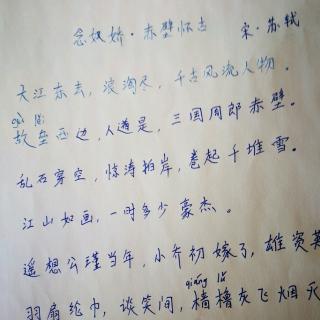 念奴娇·赤壁怀古 宋·苏轼
大江东去，浪淘尽，千古风流人物。
gù lěi
故垒西边，人道是，三国周郎赤壁。
乱石穿空，惊涛拍岸，卷起千堆雪。
江山如画，一时多少豪杰。
遥想公瑾当年，小乔初嫁了，雄姿英
qiáng lǔ
羽扇纶巾，谈笑间，樯橹灰飞烟灭